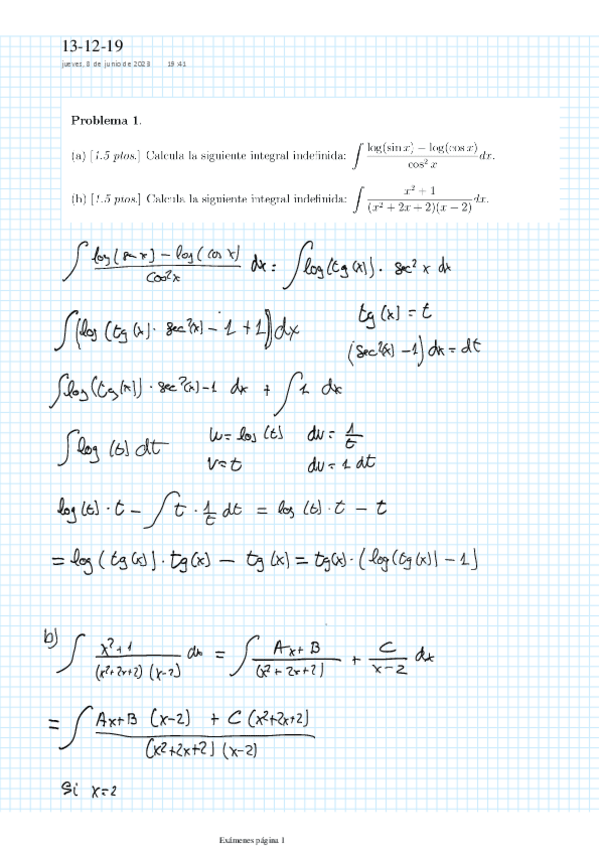 13-12-19
jueves, 8 de junio de 2023 19:41
Problema 1.
(a) [1.5 ptos.] Calcula la siguiente integral indefinida: ∫ (log(sin x) − log(cos x))/(cos² x) dx.
(b) [1.5 ptos.] Calcula la siguiente integral indefinida: ∫ (x² + 1)/((x² + 2x + 2)(x − 2)) dx.
∫ (log(sen x) − log(cos x))/(cos²x) dx = ∫ log(tg(x)) · sec² x dx
∫(log(tg(x) · sec²(x) − 1 + 1)) dx tg(x) = t
(sec²(x) − 1) dx = dt
∫ log(tg(x)) · sec²(x) − 1 dx + ∫ 1 dx
∫ log(t) dt u = log(t) du = 1/t
v = t dv = 1 dt
log(t) · t − ∫ t · 1/t dt = log(t) · t − t
= log(tg(x)) · tg(x) − tg(x) = tg(x) · (log(tg(x)) − 1)
b) ∫ (x² + 1)/((x² + 2x + 2)(x − 2)) dx = ∫ (Ax + B)/(x² + 2x + 2) + C/(x − 2) dx
= ∫ (Ax + B (x − 2) + C (x² + 2x + 2))/((x² + 2x + 2)(x − 2))
Si x = 2
Exámenes página 1